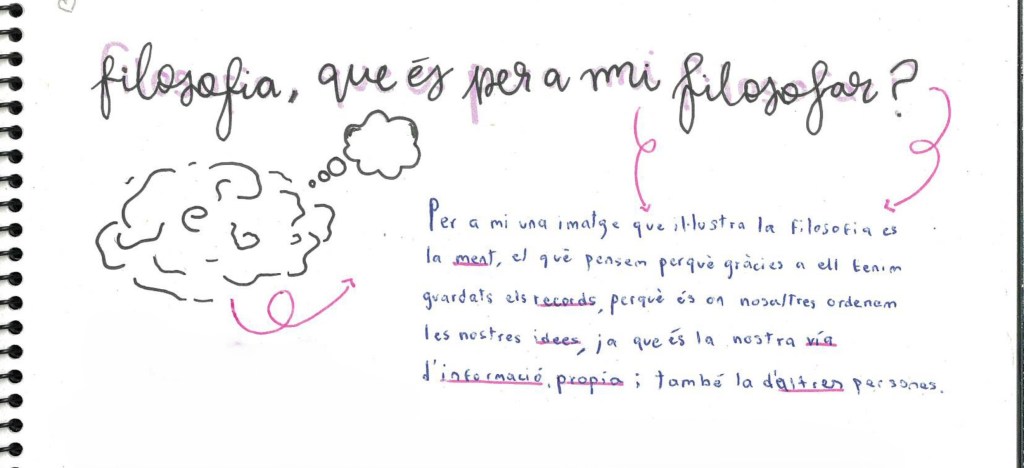 filosofia, que és per a mi filosofar?
Per a mi una imatge que il·lustra la filosofia es
la ment, el què pensem perquè gràcies a ell tenim
guardats els records, perquè és on nosaltres ordenem
les nostres idees, ja que és la nostra vía
d'informació, propia i també la d'altres persones.